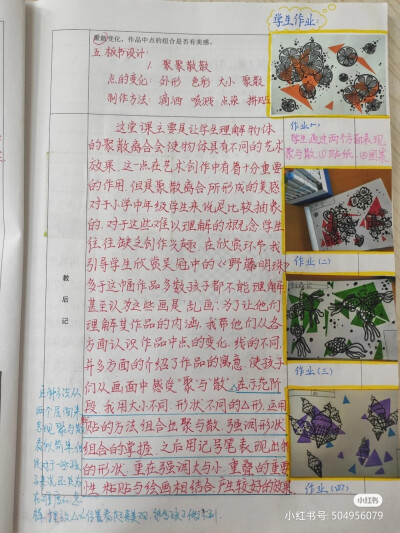 聚散变化。作品中点的组合是否有美感。
五.板书设计:
1. 聚聚散散
点的变化: 外形 色彩 大小 聚散
制作方法: 滴洒 喷溅 点朵 拼贴
这堂课主要是让学生理解物体
的聚散离合会使物体具有不同的艺术
效果,这一点在艺术创作中有着十分重要
的作用,但是聚散离合所形成的美感
对于小学中年级学生来说是比较抽象
的,对于这些难以理解的概念学生
往往缺乏创作兴趣。在欣赏环节我
引导学生欣赏吴冠中的《野藤明珠》
多于这幅作品多数孩子都不能理解
甚至认为这些画是"乱画",为了让他们
理解其作品的内涵,我带他们从各
方面认识作品中点的变化,线的不同,
并多方面的介绍了作品的寓意,使孩子
们从画面中感受"聚"与"散",在示范阶
段,我用大小不同、形状不同的△形,运用
贴的方法,组合出聚与散,强调形状
组合的掌握,之后用记号笔表现出
的形状,重在强调大与小,重叠的重要
性,粘贴与绘画相结合产生较好的效果
教后记
两个层面来
表现聚与散
学生作业:
作业(一)
学生通过两个方面表现
聚与散
作业(二)
作业(三)
作业(四)
小红书
小红书号: 504956079